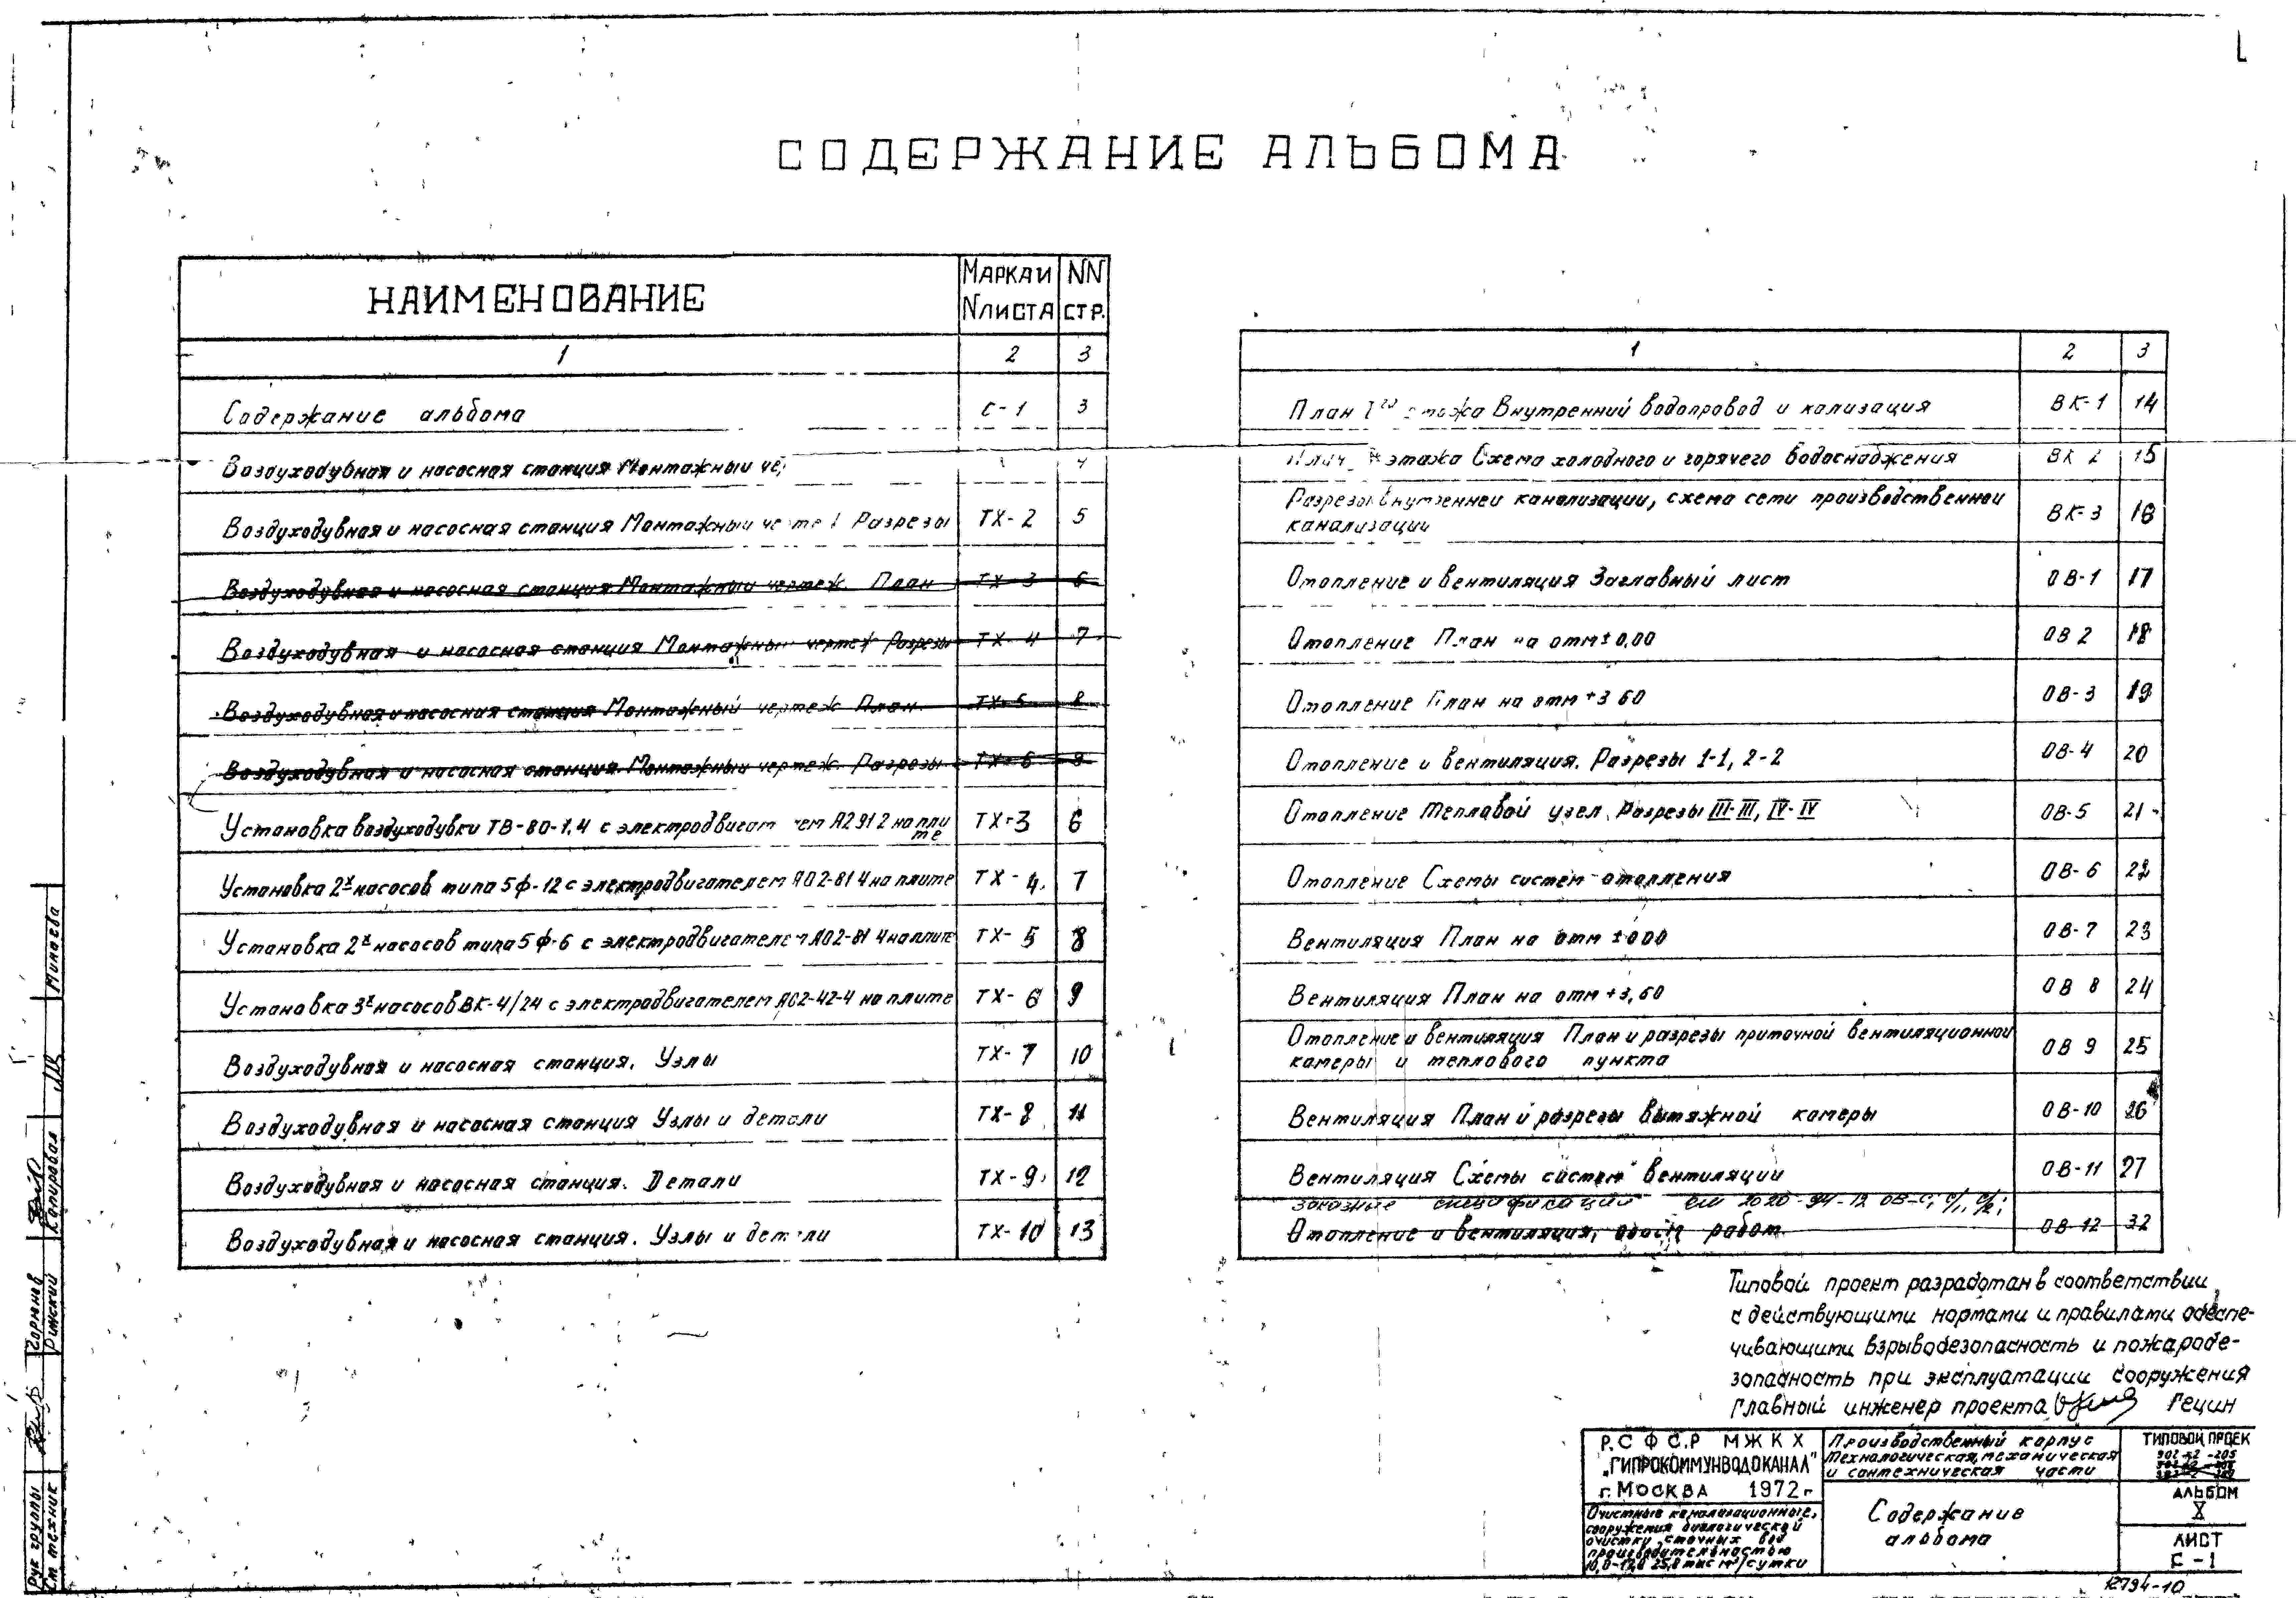 СОДЕРЖАНИЕ АЛЬБОМА
НАИМЕНОВАНИЕ МАРКА И N ЛИСТА NN СТР.
1 2 3
Содержание альбома С-1 3
Воздуходувная и насосная станция Монтажный 4
Воздуходувная и насосная станция Монтажный Разрезы ТХ-2 5
Воздуходувная и насосная станция Монтажный чертеж. План ТХ-3 6
Воздуходувная и насосная станция Монтажный чертеж Разрезы ТХ-4 7
Воздуходувная и насосная станция Монтажный чертеж План ТХ-5 8
Воздуходувная и насосная станция. Монтажный чертеж. Разрезы ТХ-6 9
Установка воздуходувки ТВ-80-1,4 с А2 91 2 на плите ТХ-3 6
Установка 2х насосов типа 5ф-12 с электродвигателем АО2-81 4 на плите ТХ-4 7
Установка 2х насосов типа 5ф-6 с электродвигателем АО2-81 4 на плите ТХ-5 8
Установка 3х насосов ВК-4/24 с электродвигателем АО2-42-4 на плите ТХ-6 9
Воздуходувная и насосная станция. Узлы ТХ-7 10
Воздуходувная и насосная станция Узлы и детали ТХ-8 11
Воздуходувная и насосная станция. Детали ТХ-9 12
Воздуходувная и насосная станция. Узлы и детали ТХ-10 13
1 2 3
План 1го этажа Внутренний водопровод и кализация ВК-1 14
этажа Схема холодного и горячего водоснабжения ВК 2 15
Разрезы внутренней канализации, схема сети производственной
канализации ВК-3 16
Отопление и вентиляция Заглавный лист ОВ-1 17
Отопление План на отм ± 0,00 ОВ 2 18
Отопление План на отм +3 60 ОВ-3 19
Отопление и вентиляция. Разрезы 1-1, 2-2 ОВ-4 20
Отопление Тепловой узел. Разрезы III-III, IV-IV ОВ-5 21
Отопление Схемы систем отопления ОВ-6 22
Вентиляция План на отм ±000 ОВ-7 23
Вентиляция План на отм +3,60 ОВ 8 24
Отопление и вентиляция План и разрезы приточной вентиляционной
камеры и теплового пункта ОВ 9 25
Вентиляция План и разрезы вытяжной камеры ОВ-10 26
Вентиляция Схемы систем вентиляции ОВ-11 27
заказные спецификации см 2020-94-12 ОВ-С;
Отопление и вентиляция, работ ОВ-12 32
Типовой проект разработан в соответствии
с действующими нормами и правилами обеспе-
чивающими взрывобезопасность и пожаробе-
зопасность при эксплуатации сооружения
Главный инженер проекта Гецин
Р.С Ф С.Р МЖКХ
„ГИПРОКОММУНВОДОКАНАЛ"
г. МОСКВА 1972 г
Очистные канализационные,
сооружения биологической
очистки сточных вод
производительностью
10,0-17,0 25,0 тыс м³/сутки
Производственный корпус
Технологическая, механическая
и сантехническая части
Содержание
альбома
ТИПОВОЙ ПРОЕК
902-2-205
АЛЬБОМ
X
ЛИСТ
С-1
12794-10
Рук группы Горюнов
Ст техник Римский
Копировал Минаева